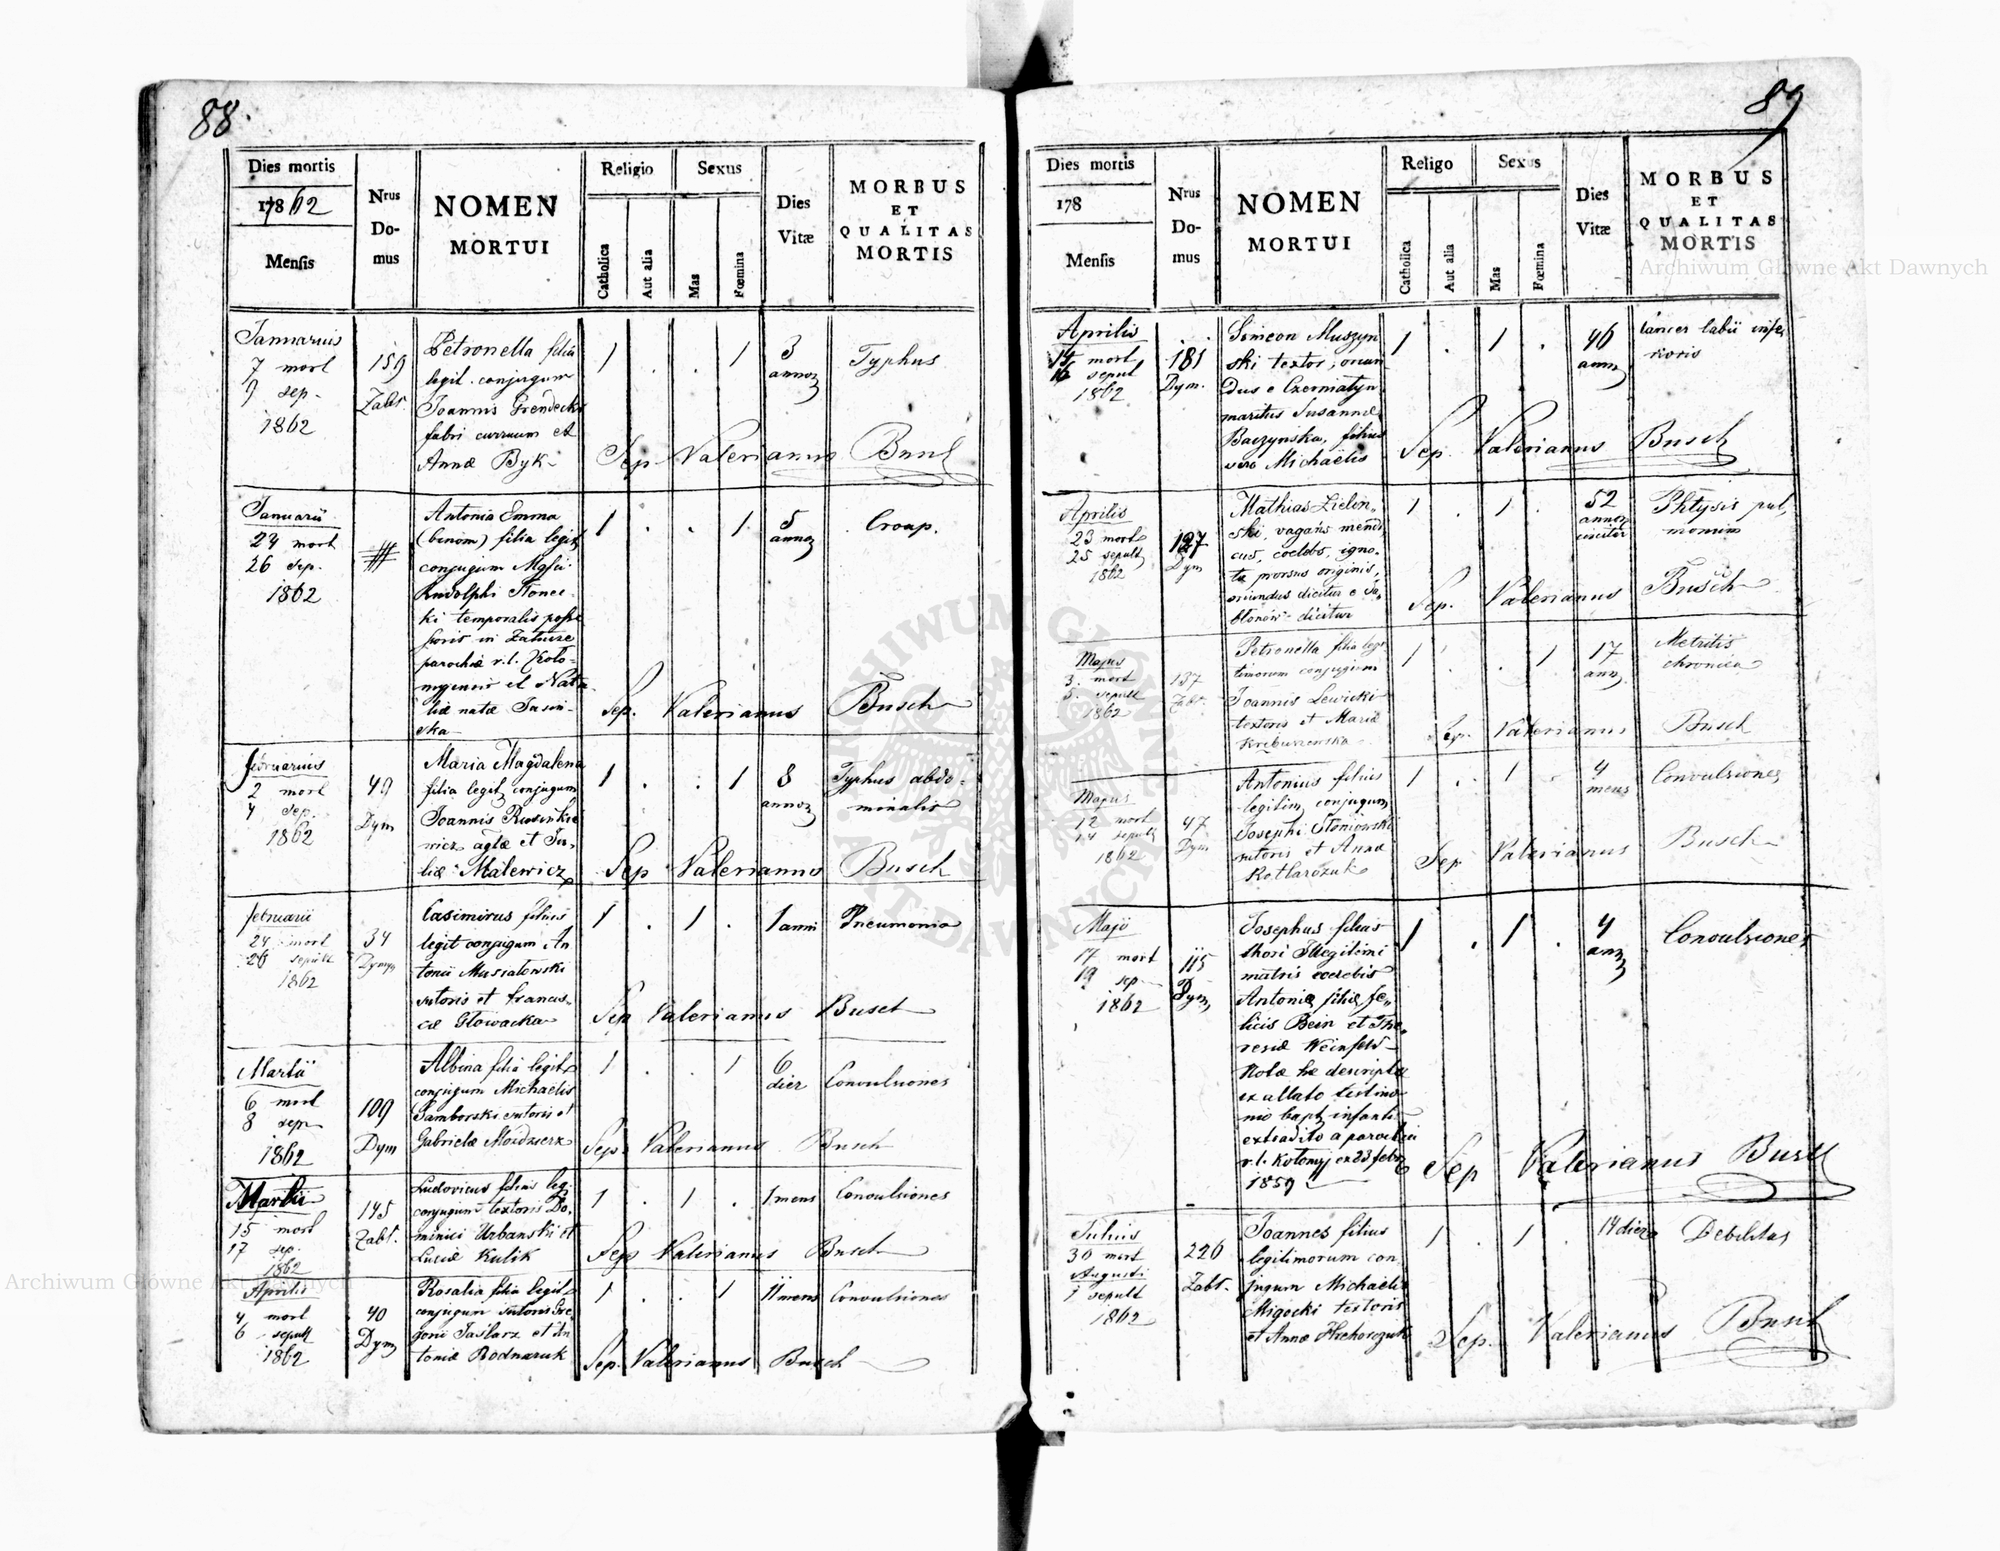 88.
Dies mortis
17862
Mensis
Nrus
Do-
mus
NOMEN
MORTUI
Religio
Catholica
Aut alia
Sexus
Mas
Fœmina
Dies
Vitæ
MORBUS
ET
QUALITAS
MORTIS
Januarius
7 mort
9 sep.
1862
159
Zabł.
Petronella filia
legit. conjugum
Joannis Grendecki
fabri curruum et
Annæ Byk
1 . . 1
3
annor
Typhus
Sep Valerianus Busch
Januarii
24 mort
26 sep.
1862
Antonia Emma
(binom) filia legit
conjugum Mgfci
Rudolphi Słonec-
ki temporalis poss
soris in Zahurze
parochiæ r.l. Koło-
myjensis et Nata
liæ natæ Jasin-
ska
1 . . 1
5
annor
Croup.
Sep. Valerianus Busch
Februarius
2 mort
4 sep.
1862
49
Dym
Maria Magdalena
filia legit conjugum
Joannis Rusinkie
wicz aglæ et Ju-
liæ Malewicz
1 . . 1
8
annor
Typhus abdo-
minalis
Sep Valerianus Busch
Februarii
24 mort
26 sepult
1862
34
Dym
Casimirus filius
legit conjugum An
tonii Musiatowski
sutoris et Francis-
cæ Głowacka
1 . 1 .
1 anni
Pneumonia
Sep Valerianus Busch
Martii
6 mort
8 sep
1862
109
Dym
Albina filia legit
conjugum Michaelis
Samborski sutoris et
Gabrielæ Moidzierz
1 . . 1
6
dier
Convulsiones
Sep. Valerianus Busch
Martii
15 mort
17 sep.
1862
145
Zabł.
Ludovicus filius leg.
conjugum textoris Do-
minici Urbanski et
Luciæ Kulik
1 . 1 .
1 mens
Convulsiones
Sep Valerianus Busch
Aprilis
4 mort
6 sepult
1862
40
Dym
Rosalia filia legit
conjugum sutoris Gre
gorii Jaślarz et An
toniæ Bodnaruk
1 . . 1
11 mens
Convulsiones
Sep. Valerianus Busch
89
Dies mortis
178
Mensis
Nrus
Do-
mus
NOMEN
MORTUI
Religo
Catholica
Aut alia
Sexus
Mas
Fœmina
Dies
Vitæ
MORBUS
ET
QUALITAS
MORTIS
Aprilis
14 mort
16 sepult
1862
181
Dym.
Simeon Muszyn
ski textor, oriun
dus e Czerniatyn
maritus Susannæ
Baczynska, filius
vero Michaëlis
1 . 1 .
46
ann
Cancer labii infe
rioris
Sep. Valerianus Busch
Aprilis
23 mort
25 sepult
1862
127
Dym
Mathias Zielin-
ski, vagans mendi
cus, coelebs, igno-
tæ prorsus originis,
oriundus dicitur e Ja-
błonów dicitur
1 . 1 .
52
annor
circiter
Phtysis pul
monum
Sep. Valerianus Busch
Majus
3. mort
5. sepult
1862
137
Zabł.
Petronella filia legi
timorum conjugum
Joannis Lewicki
textoris et Mariæ
Krzbuszewska
1 . . 1
17
ann
Metritis
chronica
Sep. Valerianus Busch
Majus
12 mort
14 sepult
1862
47
Dym
Antonius filius
legitim conjugum
Josephi Słoniowski
sutoris et Annæ
Kotlarczuk
1 . 1 .
4
mens
Convulsiones
Sep Valerianus Busch
Majo
17 mort
19 sep
1862
115
Dym
Josephus filius
thori Illegitimi
matris coelebis
Antoniæ filiæ Fe-
licis Bein et The-
resiæ Weinfeld
Notæ hæ descriptæ
ex allato testimo
nio bapt infanti
extradito a parochia
r.l. Kołomyj ex 23 febr
1859
1 . 1 .
4
ann
Convulsiones
Sep Valerianus Busch
Julius
30 mort
Augusti
1 sepult
1862
226
Zabł.
Joannes filius
legitimorum con
jugum Michaelis
Migocki textoris
et Annæ Hrehorczuk
1 . 1 .
14 dier
Debilitas
Sep. Valerianus Busch
Archiwum Główne Akt Dawnych
Archiwum Główne Akt Dawnych
ARCHIWUM GŁÓWNE AKT DAWNYCH